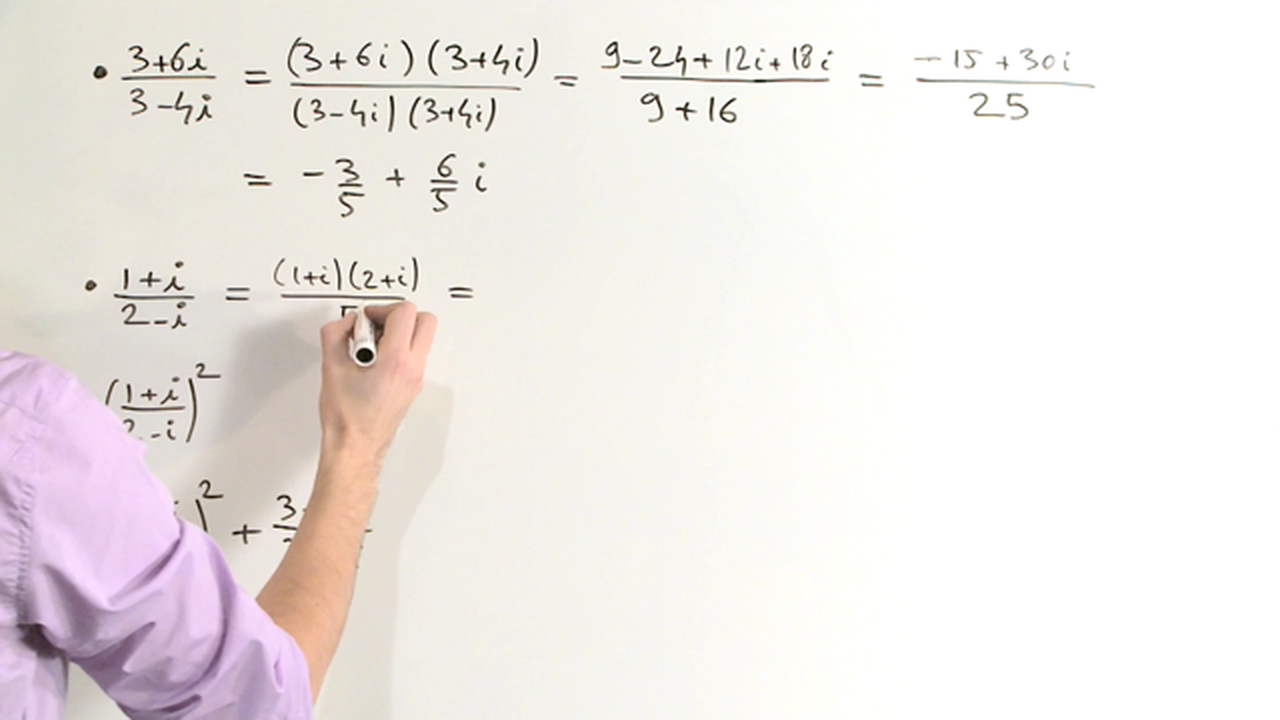 • 3+6i / 3-4i = (3+6i)(3+4i) / (3-4i)(3+4i) = 9-24+12i+18i / 9+16 = -15+30i / 25
= -3/5 + 6/5 i
• 1+i / 2-i = (1+i)(2+i) / 5 =
(1+i / 2-i)²
)² + 3